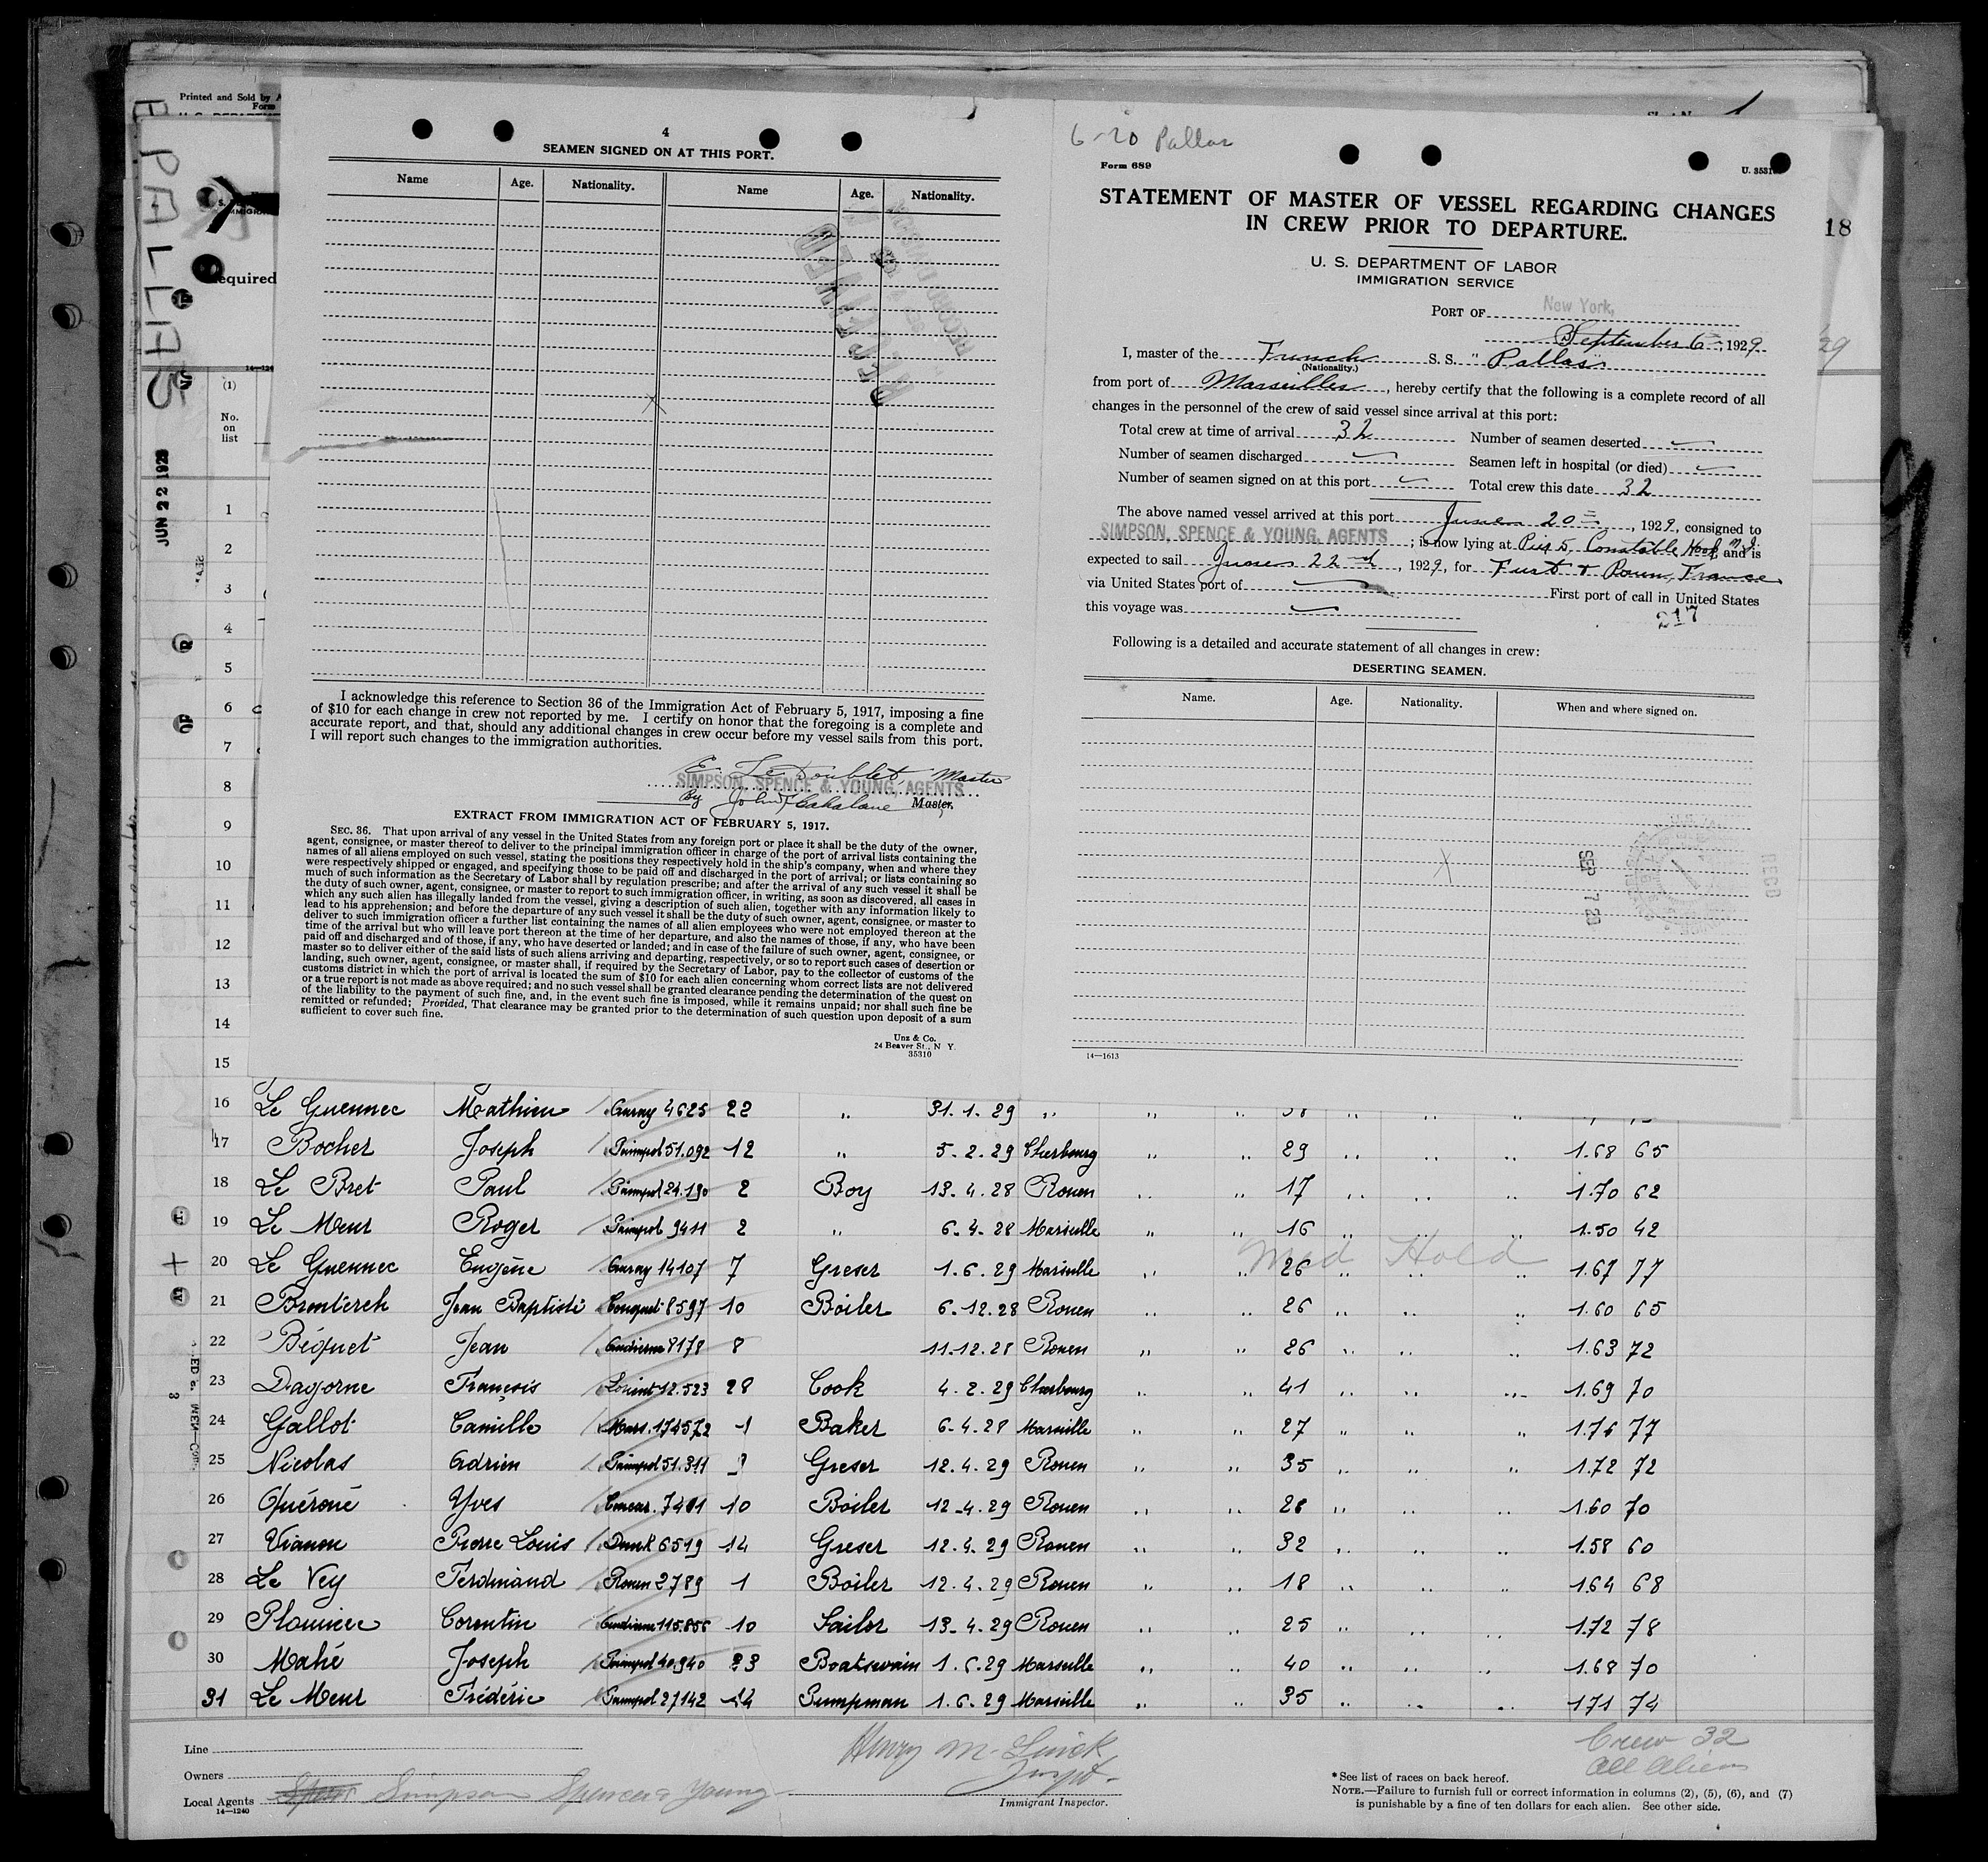 Printed and Sold by
Form
PALLAS
required
JUN 22 1929
(1)
No.
on
list
4
SEAMEN SIGNED ON AT THIS PORT.
Name Age. Nationality. Name Age. Nationality.
I acknowledge this reference to Section 36 of the Immigration Act of February 5, 1917, imposing a fine
of $10 for each change in crew not reported by me. I certify on honor that the foregoing is a complete and
accurate report, and that, should any additional changes in crew occur before my vessel sails from this port.
I will report such changes to the immigration authorities.
E. Le Doublet, Master
SIMPSON, SPENCE & YOUNG, AGENTS
By John Master,
EXTRACT FROM IMMIGRATION ACT OF FEBRUARY 5, 1917.
SEC. 36. That upon arrival of any vessel in the United States from any foreign port or place it shall be the duty of the owner,
agent, consignee, or master thereof to deliver to the principal immigration officer in charge of the port of arrival lists containing the
names of all aliens employed on such vessel, stating the positions they respectively hold in the ship's company, when and where they
were respectively shipped or engaged, and specifying those to be paid off and discharged in the port of arrival; or lists containing so
much of such information as the Secretary of Labor shall by regulation prescribe; and after the arrival of any such vessel it shall be
the duty of such owner, agent, consignee, or master to report to such immigration officer, in writing, as soon as discovered, all cases in
which any such alien has illegally landed from the vessel, giving a description of such alien, together with any information likely to
lead to his apprehension; and before the departure of any such vessel it shall be the duty of such owner, agent, consignee, or master to
deliver to such immigration officer a further list containing the names of all alien employees who were not employed thereon at the
time of the arrival but who will leave port thereon at the time of her departure, and also the names of those, if any, who have been
paid off and discharged and of those, if any, who have deserted or landed; and in case of the failure of such owner, agent, consignee, or
master so to deliver either of the said lists of such aliens arriving and departing, respectively, or so to report such cases of desertion or
landing, such owner, agent, consignee, or master shall, if required by the Secretary of Labor, pay to the collector of customs of the
customs district in which the port of arrival is located the sum of $10 for each alien concerning whom correct lists are not delivered
or a true report is not made as above required; and no such vessel shall be granted clearance pending the determination of the quest on
of the liability to the payment of such fine, and, in the event such fine is imposed, while it remains unpaid; nor shall such fine be
remitted or refunded; Provided, That clearance may be granted prior to the determination of such question upon deposit of a sum
sufficient to cover such fine.
Unz & Co.
24 Beaver St., N Y.
35310
6-20 Pallas
Form 689
STATEMENT OF MASTER OF VESSEL REGARDING CHANGES
IN CREW PRIOR TO DEPARTURE.
18
U. S. DEPARTMENT OF LABOR
IMMIGRATION SERVICE
PORT OF New York,
September 6, 1929
I, master of the French S. S. "Pallas"
(Nationality.)
from port of Marseilles, hereby certify that the following is a complete record of all
changes in the personnel of the crew of said vessel since arrival at this port:
Total crew at time of arrival 32 Number of seamen deserted
Number of seamen discharged Seamen left in hospital (or died)
Number of seamen signed on at this port Total crew this date 32
The above named vessel arrived at this port June 20, 1929, consigned to
SIMPSON, SPENCE & YOUNG, AGENTS; is now lying at Pier 5, Constable Hook, N.J. and is
expected to sail June 22nd, 1929, for Rouen, France
via United States port of First port of call in United States
this voyage was
217
Following is a detailed and accurate statement of all changes in crew:
DESERTING SEAMEN.
Name. Age. Nationality. When and where signed on.
SEP 7 29
RECD
14—1613
1
2
3
4
5
6
7
8
9
10
11
12
13
14
15
16 Le Guennec Mathieu Auray 4625 22 " 31.1.29 " " "
17 Bocher Joseph Paimpol 51.092 12 " 5.2.29 Cherbourg " " 29 " " " 1.68 65
18 Le Bret Paul Paimpol 24.190 2 Boy 13.4.28 Rouen " " 17 " " " 1.70 62
19 Le Meur Roger Paimpol 9411 2 " 6.4.28 Marseille " " 16 " " " 1.50 42
Med Hold
20 Le Guennec Eugène Auray 14107 7 Greser 1.6.29 Marseille " " 26 " " " 1.67 77
21 Brenterch Jean Baptiste Conquet 8597 10 Boiler 6.12.28 Rouen " " 26 " " " 1.60 65
22 Béquet Jean Audierne 8178 8 11.12.28 Rouen " " 26 " " " 1.63 72
23 Dagorne François Lorient 12.523 28 Cook 4.2.29 Cherbourg " " 41 " " " 1.69 70
24 Gallot Camille Mars. 174572 1 Baker 6.4.28 Marseille " " 27 " " " 1.76 77
25 Nicolas Adrien Paimpol 51.311 Greser 12.4.29 Rouen " " 35 " " " 1.72 72
26 Quéroué Yves 10 Boiler 12.4.29 Rouen " " 28 " " " 1.60 70
27 Vianou Pierre Louis Dunk 6519 14 Greser 12.4.29 Rouen " " 32 " " " 1.58 60
28 Le Vey Ferdinand Rouen 2789 1 Boiler 12.4.29 Rouen " " 18 " " " 1.64 68
29 Corentin Audierne 10 Sailor 13.4.29 Rouen " " 25 " " " 1.72 78
30 Mahé Joseph Paimpol 40.940 23 Boatswain 1.6.29 Marseille " " 40 " " " 1.68 70
31 Le Meur Frédéric Paimpol 27142 14 Pumpman 1.6.29 Marseille " " 35 " " " 1.71 74
Line
Owners
Local Agents Simpson Spence & Young
14—1240
Henry M.
Inspt.
Immigrant Inspector.
Crew 32
All Aliens
* See list of races on back hereof.
NOTE.—Failure to furnish full or correct information in columns (2), (5), (6), and (7)
is punishable by a fine of ten dollars for each alien. See other side.